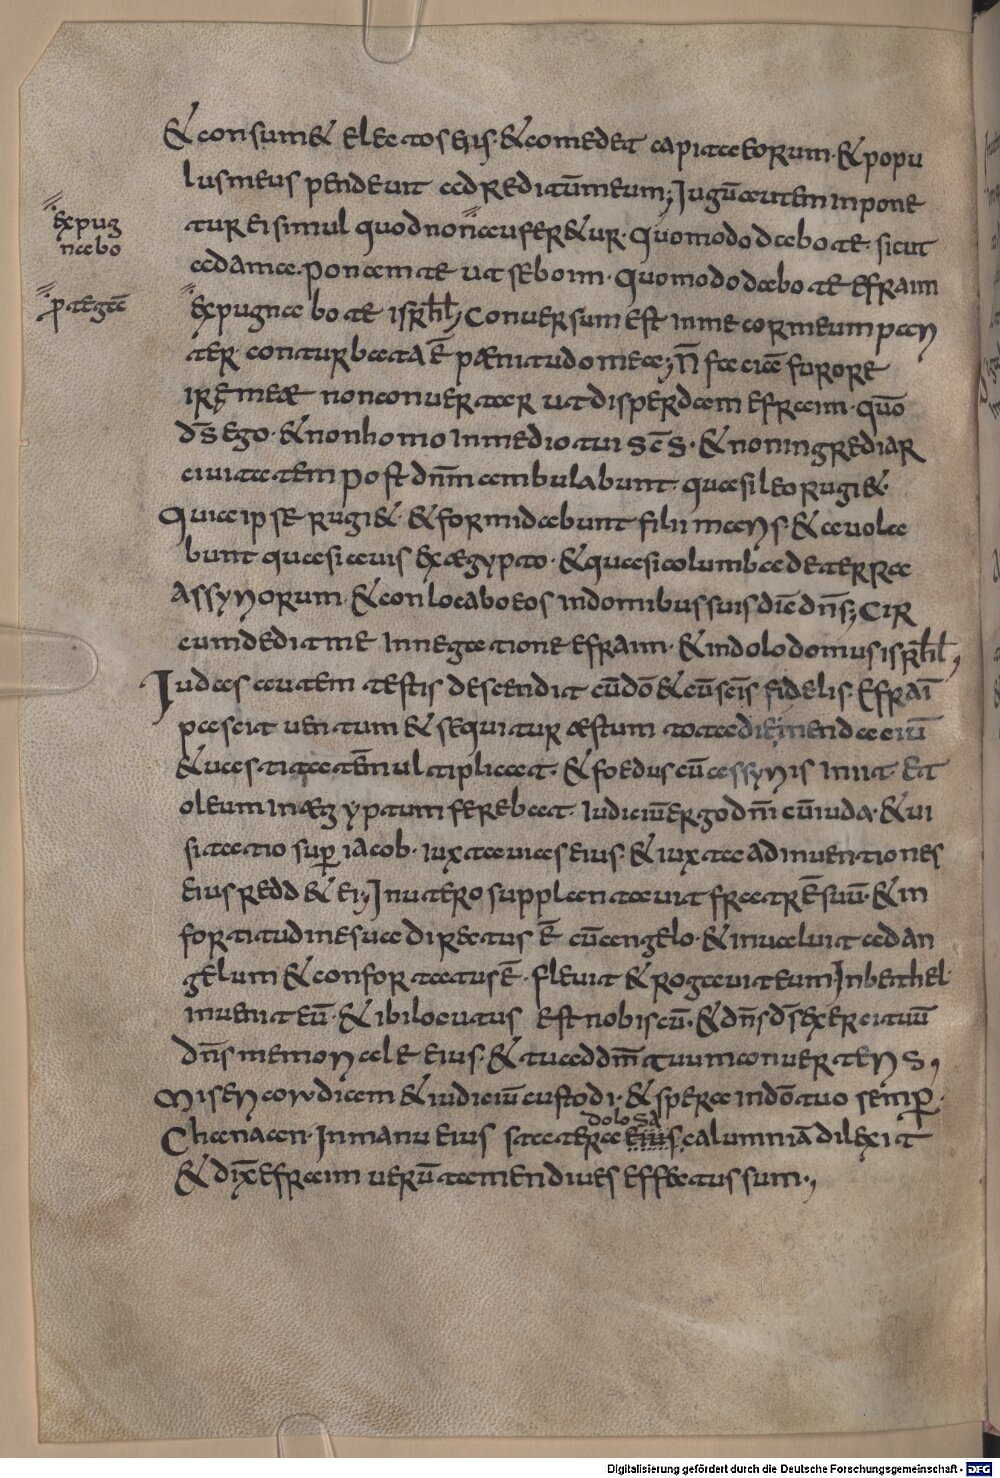 & consum& electos eius· & comedet capita eorum· & popu
lus meus pendevit ad reditū meum; Iugū autem inpone
expug
nabo
tur ei simul quod non aufer&ur· Quomodo dabo te· sicut
adama· ponam te ut seboim· quomodo dabo te efraim
ꝓtegā
expugnabo te isrł; Conversum est in me cor meum pari
ter· conturbata ē pænitudo mea; n̄ faciā furorē
irę meæ non convertar ut disperdam efraim· quō
d̄s ego· & non homo in medio tui sc̄s· & non ingrediar
civitatem post dn̄m ambulabunt· quasi leo rugi&·
Quia ipse rugi&· & formidabunt filii maris· & avola
bunt quasi avis ex ægypto· & quasi columba de terra
assyriorum· & conlocabo eos in domibus suis dic̄ dn̄s; Cir
cumdedit me in negatione efraim· & in dolo domus isrł;
Iudas autem testis descendit cū dō & cū sc̄is fidelis· Efraī
pascit ventum & sequitur æstum tota die mendaciū
& vastitatē multiplicat· & foedus cū assyriis iniit· et
oleum in ægyptum ferebat· iudiciū ergo dn̄i cū iuda· & vi
sitatio sup̄ iacob· iuxta vias eius· & iuxta adinventiones
eius redd& ei; In utero supplantavit fratrē suū· & in
fortitudine sua directus ē cū angelo· & invaluit ad an
gelum & confortatus ē· flevit & rogavit eum In bethel·
invenit eū· & ibi locutus est nobiscū· & dn̄s d̄s exercituū
dn̄s memoriale eius· & tu ad dm̄ tuum converteris,
Misericordiam & iudiciū custodi· & spera in dō tuo semp̄·
dolosa
Chanaan· In manu eius statera eius, calumniā dilexit
& dix̄ efraim verū tamen dives effectus sum·,
Digitalisierung gefördert durch die Deutsche Forschungsgemeinschaft - DFG